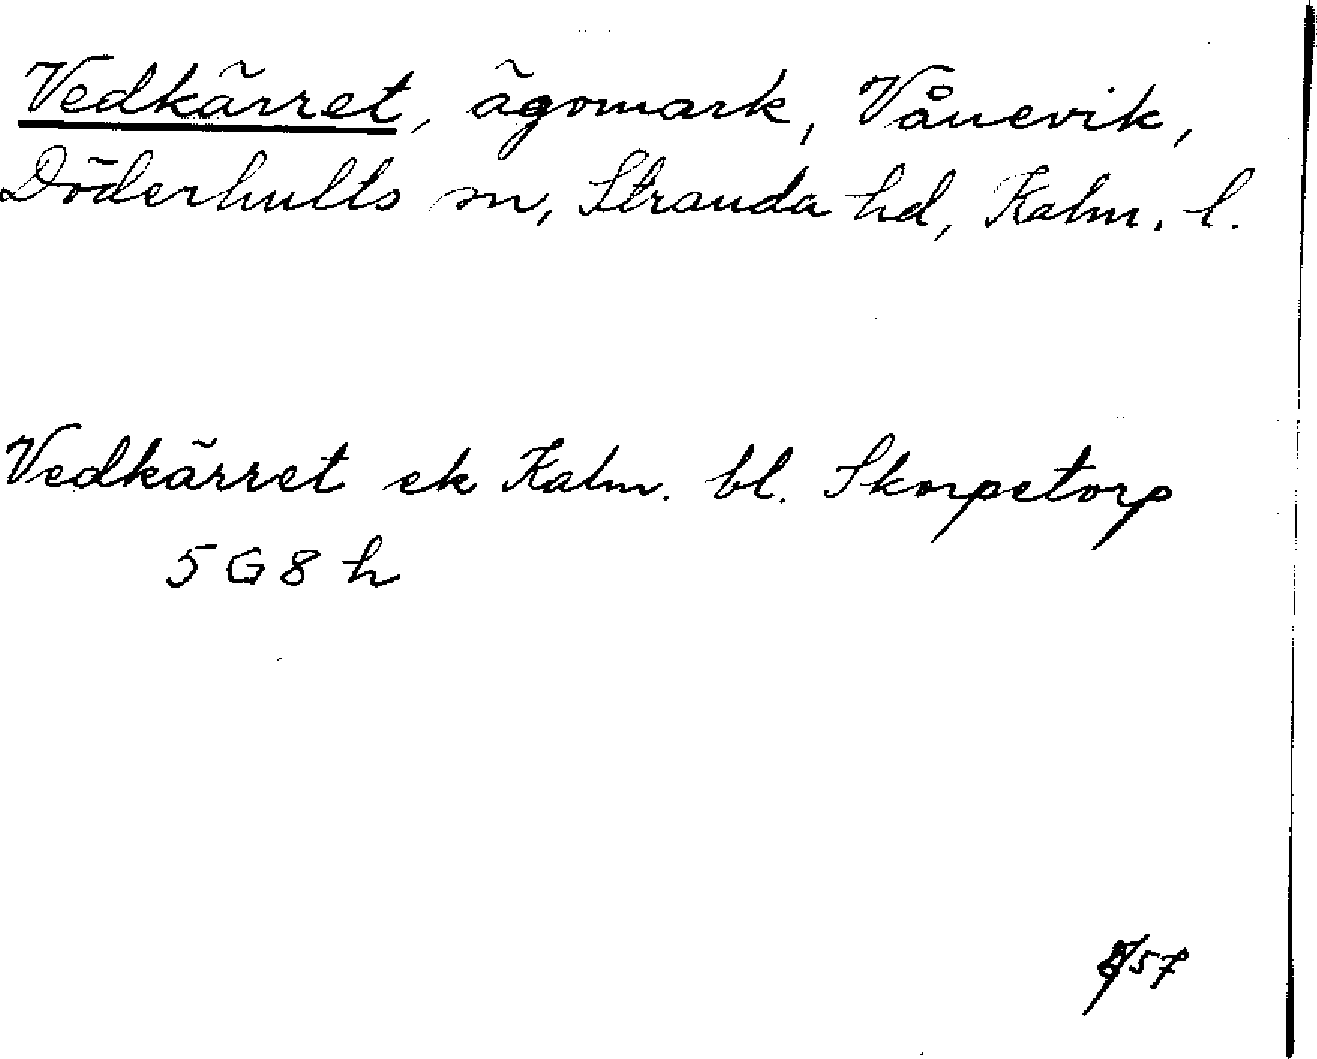 Vedkärret, ägomark, Vånevik,
Döderhults sn, Stranda hd, Kalm. l.
Vedkärret ek Kalm. bl. Skorpetorp
5 G 8 h